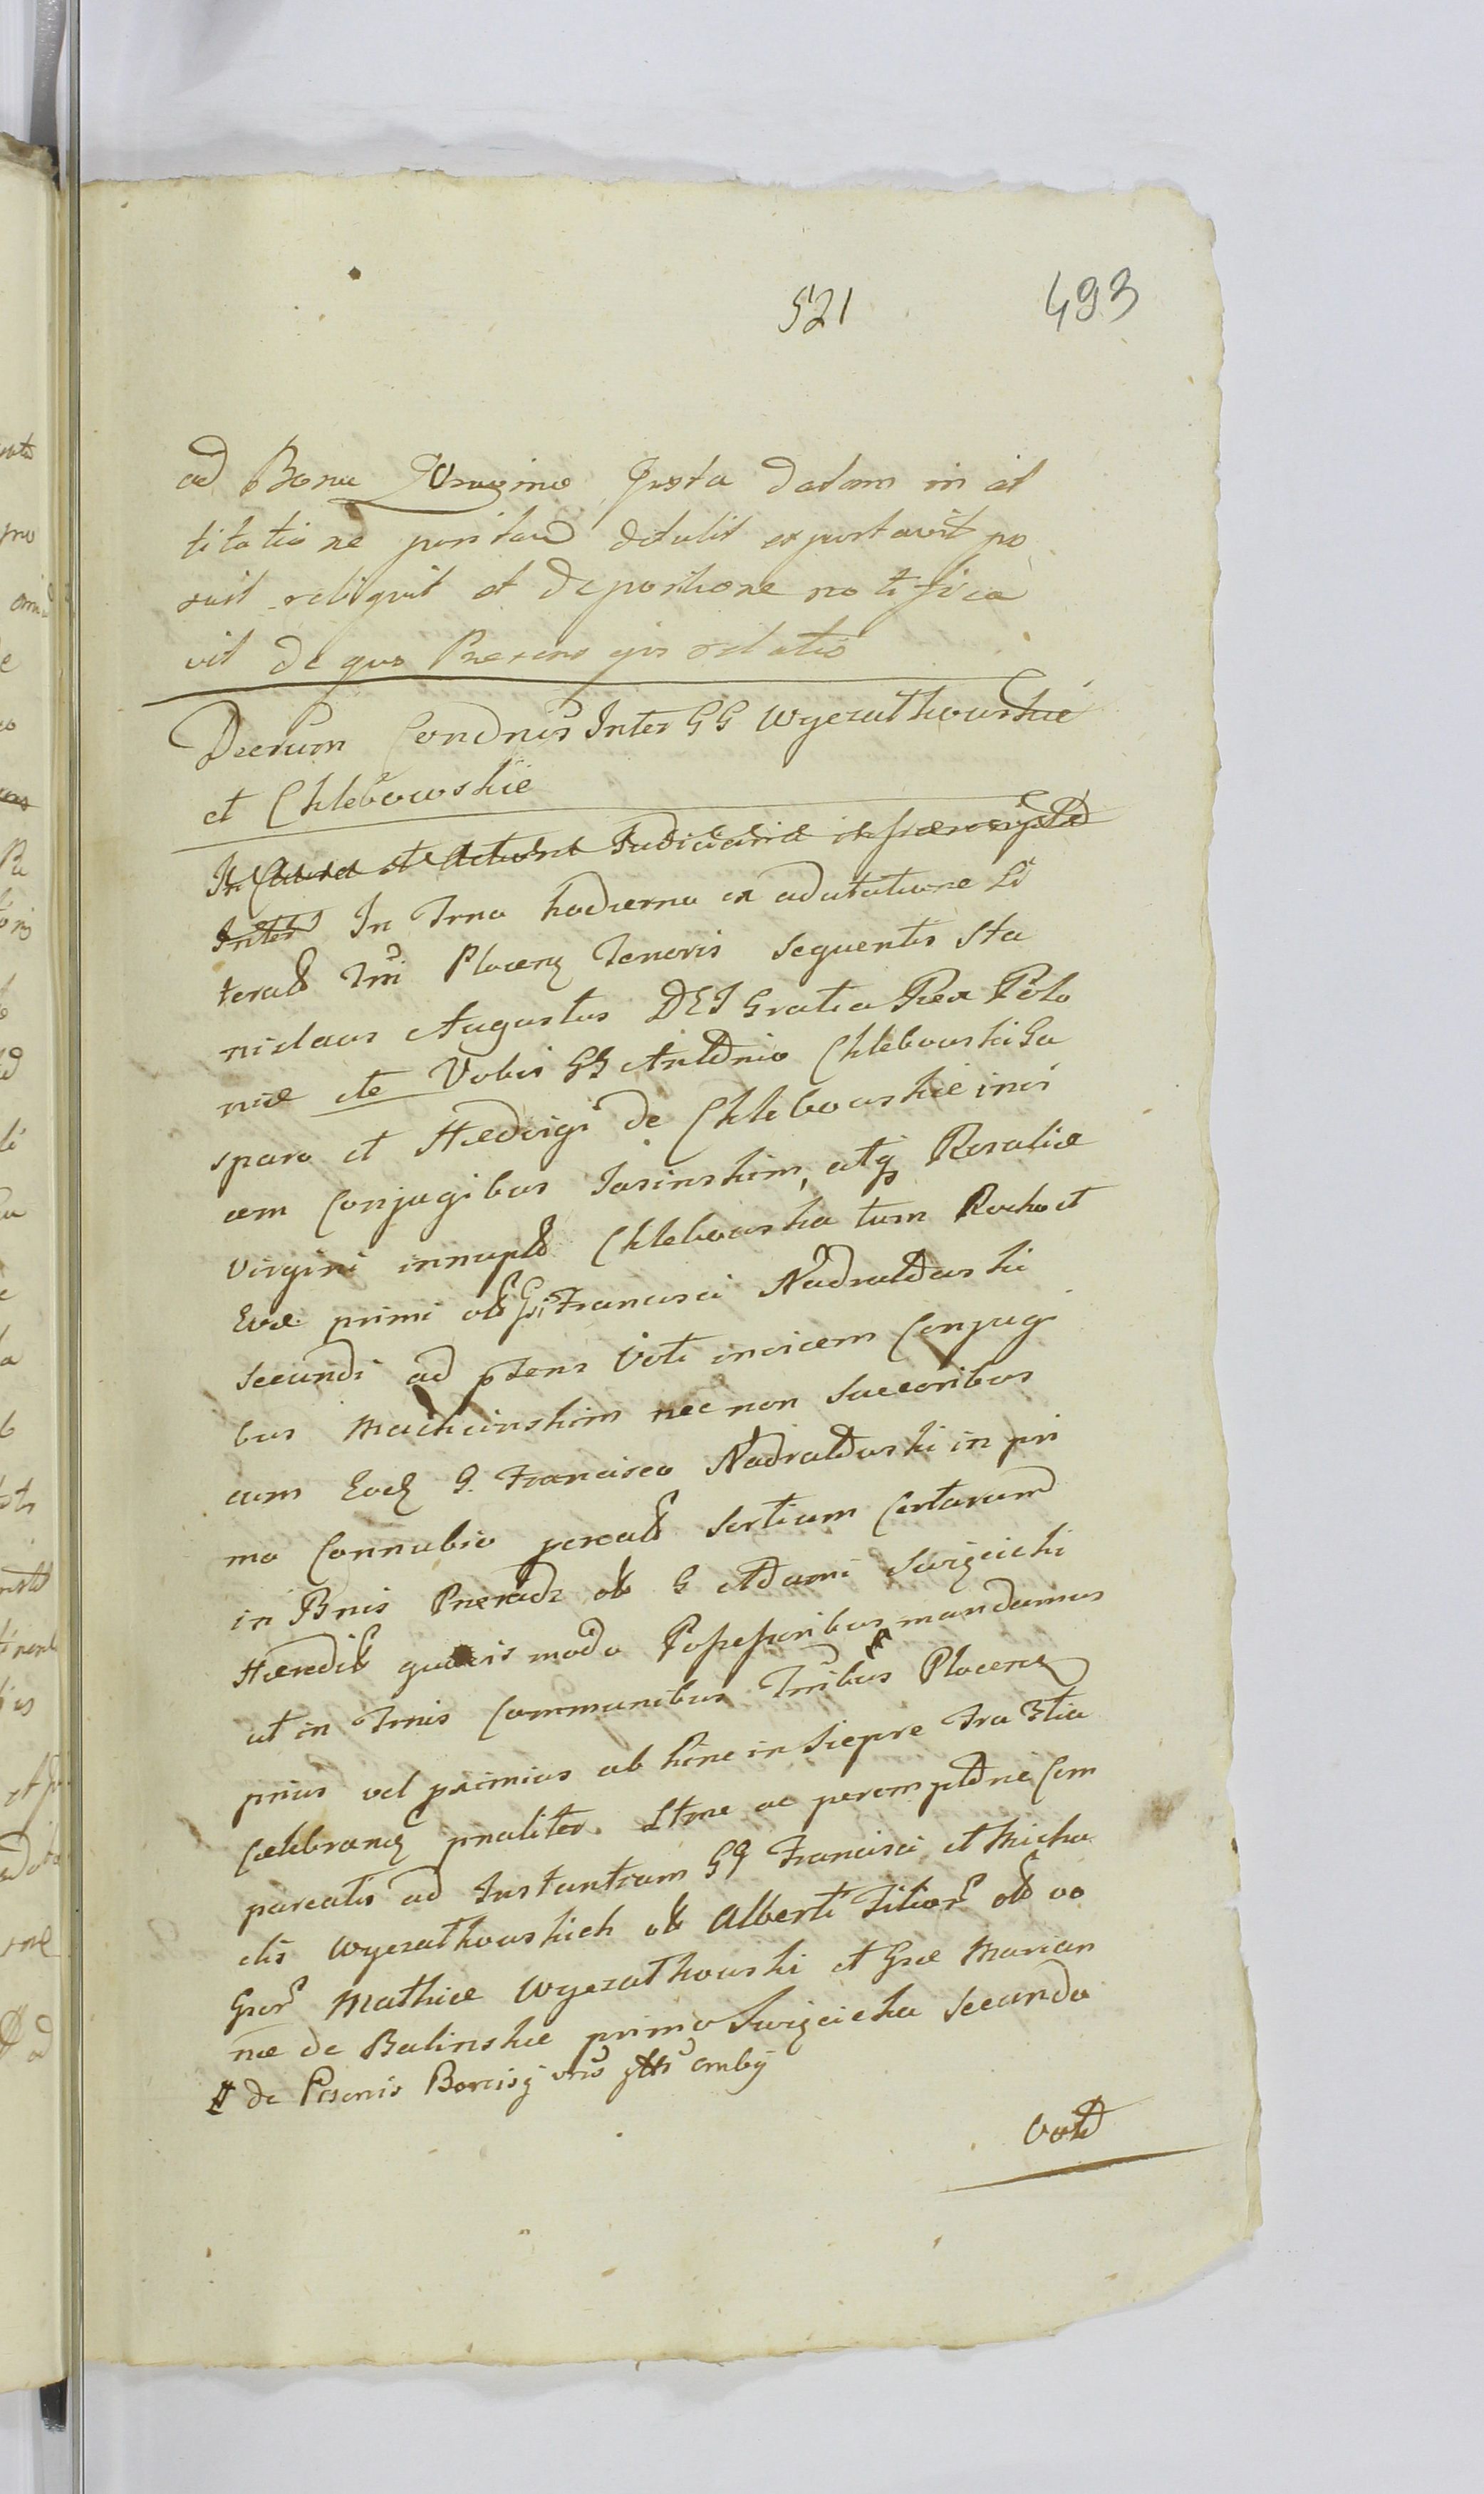 521 493
ad Bona Juxta datam in ci
titatione positam detulit exportavit po
suit reliquit et depositione notifica
vit de quo Praesens ejus relatio
Decrum Condnis Inter GG Wyezathowskie
et Chlebowskie
In Causa et Actione Judiciaria
Inter In Trno hodierno ex adcitatione Li
terali Tri Plocens Tenoris Sequentis Sta
nislaus Augustus DEI Gratia Rex Polo
niæ etc Vobis GG Antonio Chlebowski Ga
sparo et Hedvigi de Chlebowskie invi
cem Conjugibus Jasinskim, atq Rosaliæ
Virgini innuptæ Chlebowska tum Rocho et
Evæ primi olim Gsi Francisci Nadratowski
secundi ad præsens Voti invicem Conjugi
bus Machcinskim nec non Succoribus
cum G. Francisco Nadratowski in pri
mo Connubio Sortium Certarum
in Bnis ol G Adami Swięcicki
Hæredit quovis modo Possessoribus mandamus
ut in Trnis Communibus Trribus Plocens
prius vel proximius ab hinc in Siepre
Celebrand pnaliter Ltme ac peremptorie Com
pareatis ad Instantiam GG Francisci et Micha
elis Wyezathowskich ol Alberti Filior ol vo
Gsor Mathiæ Wyezathowski et Gsæ Marian
næ de Balinskie primo Swięcicka secundo
# de Psonis Bonisq vris ambij
Voto